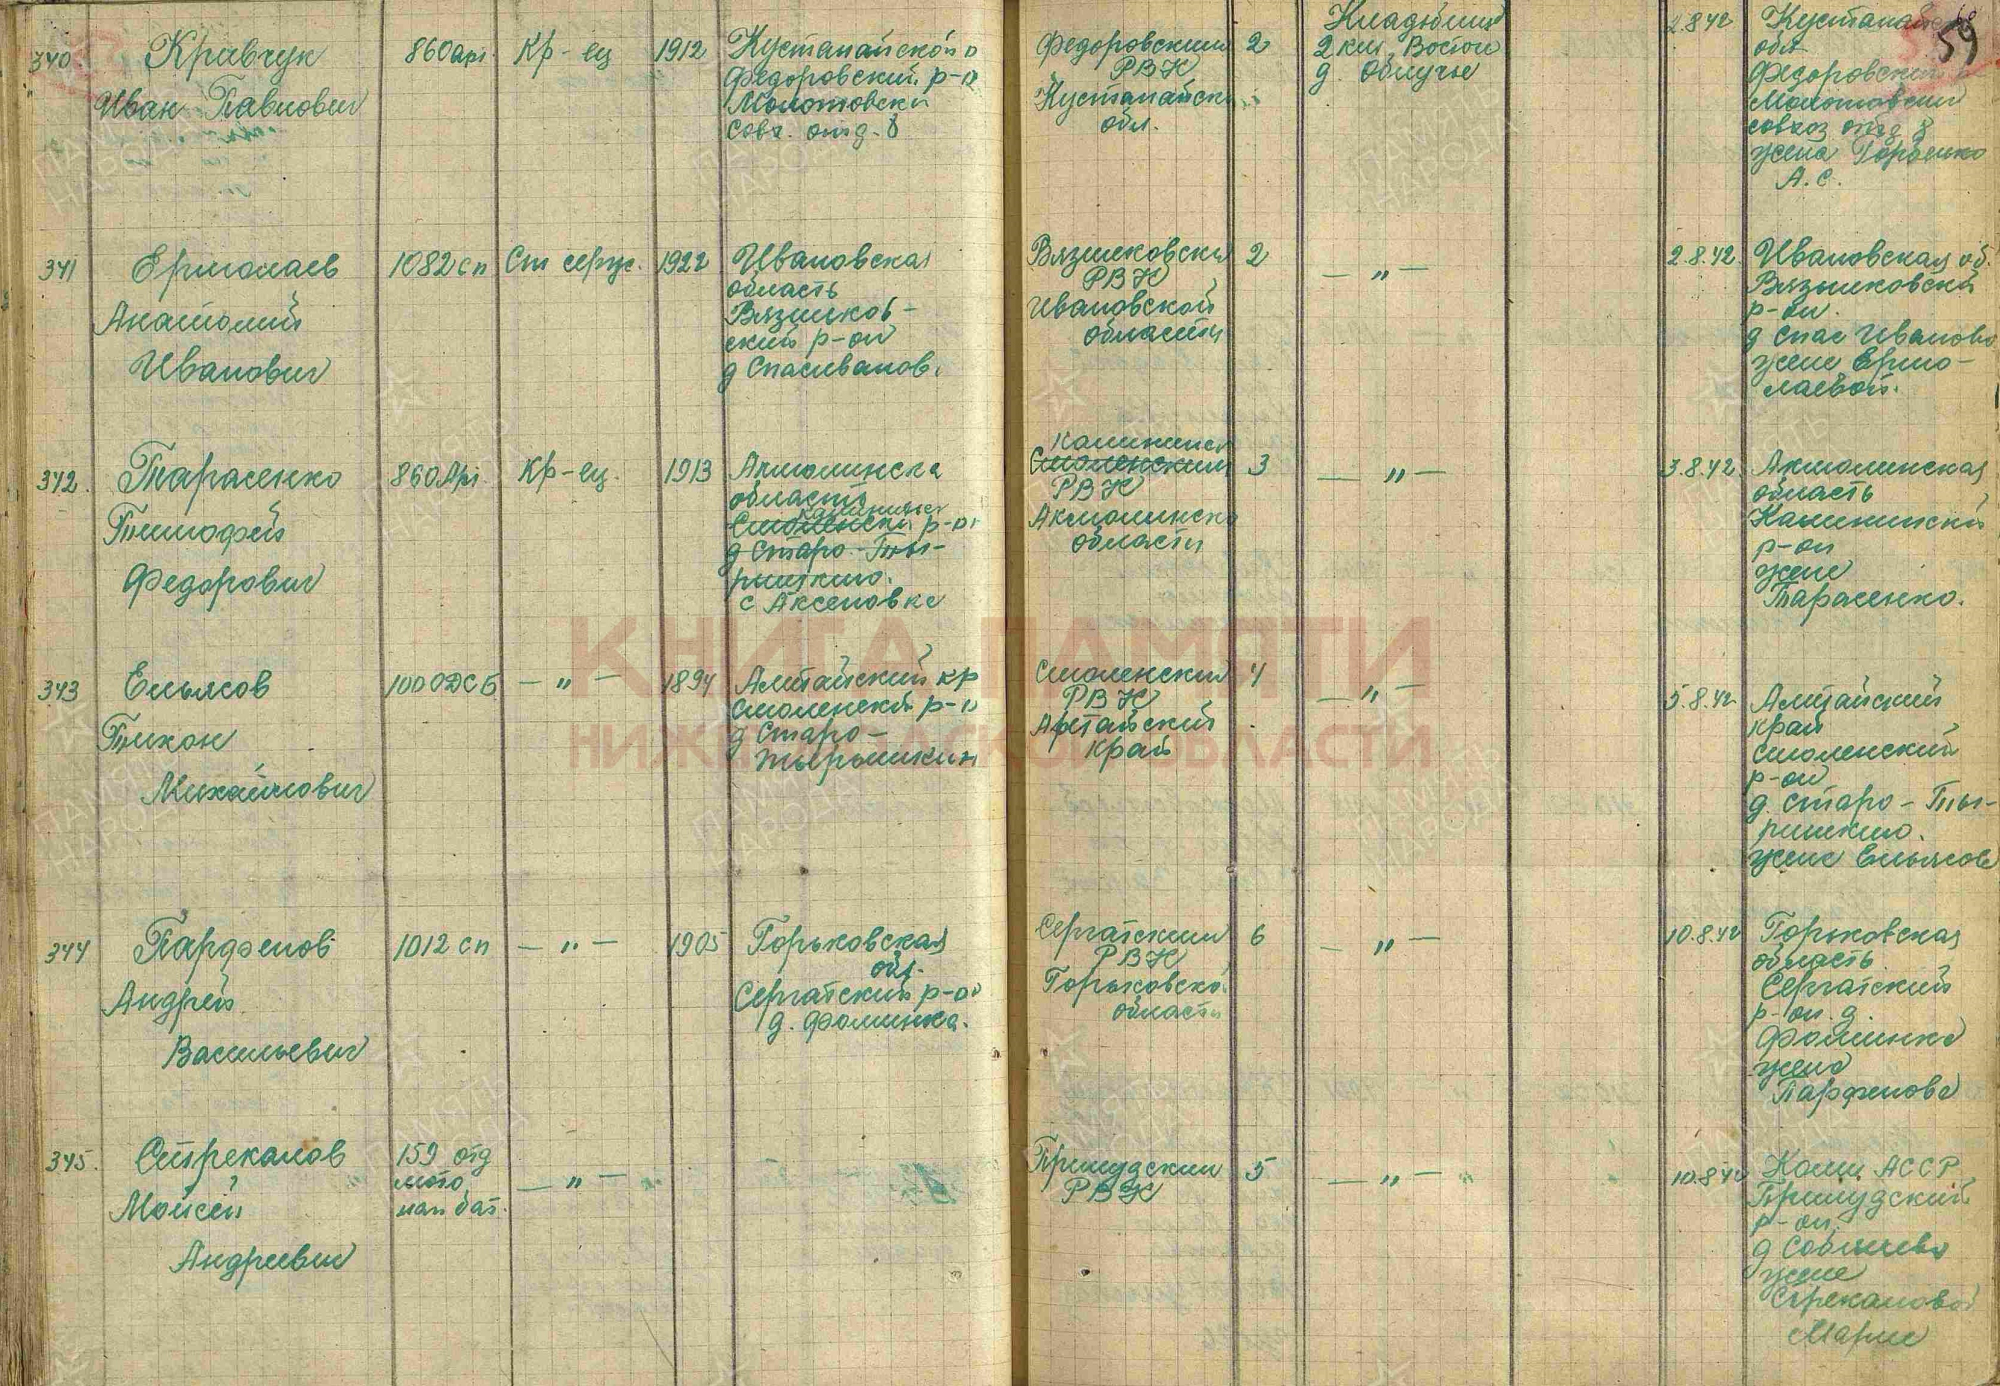 59
340. Кравчук 860 арт. Кр-ец 1912 Кустанайской о
Федоровский р-н
Молотовски
совх. отд. 8
Иван Павлович
Федоровским 2
РВК
Кустанайск
обл.
Кладбище
2 км. Восточ
д. Обмучье
2.8.42
Кустанайск
обл
Федоровский
Молотовский
совхоз отд 8
жена
А.С.
341 Ермолаев 1082 сп Ст серж. 1922 Ивановская
область
Вязников-
ский р-он
д Спасиванов.
Анатолий
Иванович
Вязниковски 2
РВК
Ивановской
области
— „ —
2.8.42.
Ивановская об.
Вязниковский
р-он.
д Спас Иваново
жене Ермо-
лаевой.
342. Тарасенко 860 Арт Кр-ец. 1913 Акмолинска
область
калининск
Смоленски р-он
д Старо-Ты-
ришкино.
с Аксеновка
Тимофей
Федорович
калининск
Смоленским 3
РВК
Акмолинско
области
— „ —
3.8.42.
Акмолинская
область
Калининский
р-он
жене
Тарасенко.
343 Ельясов 1000 ДСБ — „ — 1894 Алтайский кр
Смоленский р-н
д Старо-
тырышкин
Тихон
Михайлович
Смоленский 4
РВК
Алтайский
край
— „ —
5.8.42
Алтайский
край
Смоленский
р-он
д. Старо-Ты-
ришкино.
жене Ельясов
344 Парфенов 1012 сп — „ — 1905 Горьковская
обл.
Сергачский р-он
д. Фоминка.
Андрей
Васильевич
Сергачским 6
РВК
Горьковско
области
— „ —
10.8.42
Горьковская
область
Сергачский
р-он. д.
Фоминка
жена
Парфенова
345. Стрекалов 159 отд
мото
бат. — „ —
Моисей
Андреевич
Прилудским 5
РВК
— „ —
10.8.42
Коми АССР
Прилудский
р-он.
д
жене
Стрекаловой
Марие
КНИГА ПАМЯТИ
НИЖЕГОРОДСКОЙ ОБЛАСТИ
ПАМЯТЬ
НАРОДА